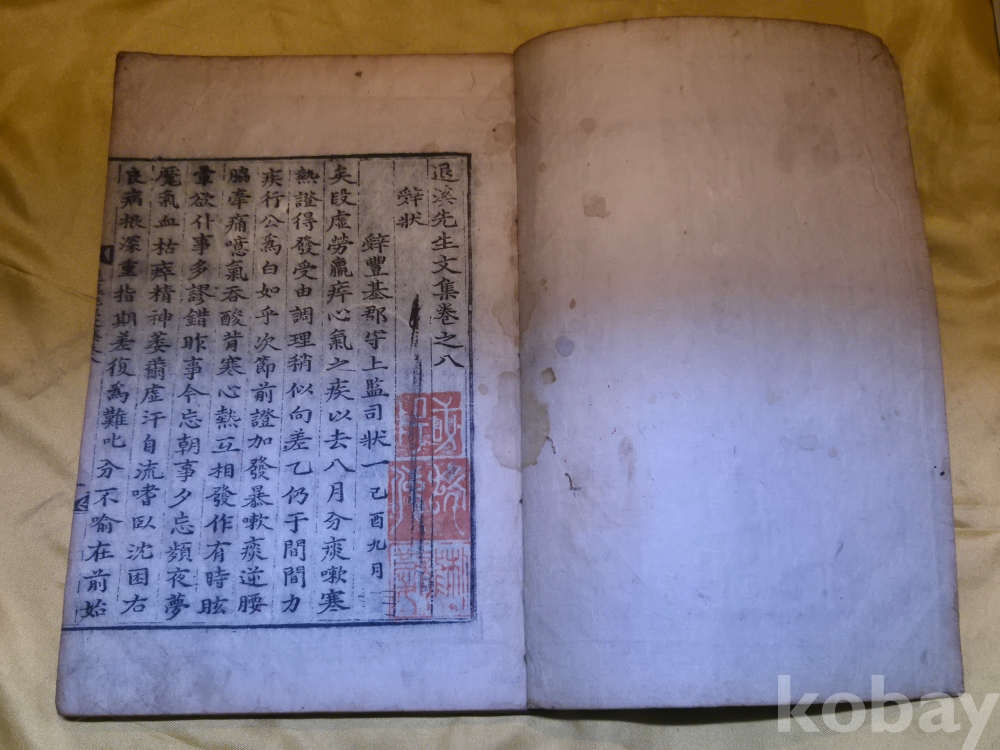 退溪先生文集卷之八
辭狀
辭豐基郡守上監司狀一己酉九月
矣段虛勞羸瘁心氣之疾以去八月分痰嗽寒
熱證得發受由調理稍似向差乙仍于間間力
疾行公爲白如乎次節前證加發暴嗽痰逆腰
脇牽痛噫氣吞酸背寒心熱互相發作有時眩
暈欲仆事多謬錯昨事今忘朝事夕忘頻夜夢
魘氣血枯瘁精神萎薾虛汗自流嗜臥沈困右
良病根深重指期差復爲難叱分不喻在前始
kobay